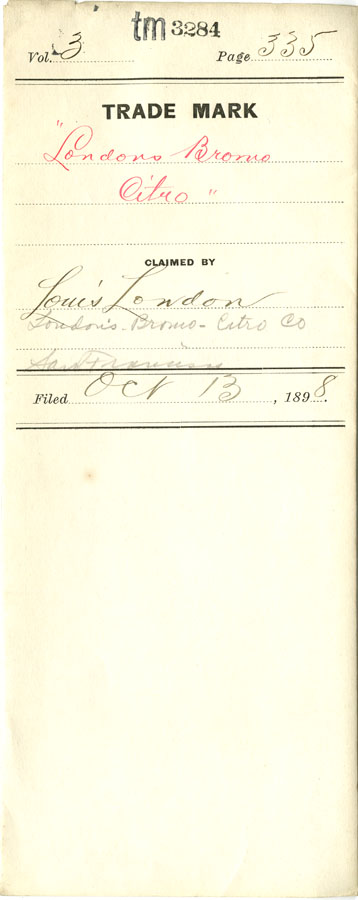 tm 3284
Vol. 3 Page 335
TRADE MARK
"Londons Bromo
Citro"
CLAIMED BY
Louis London
London's-Bromo-Citro Co
San Francisco
Filed Oct 13, 1898.